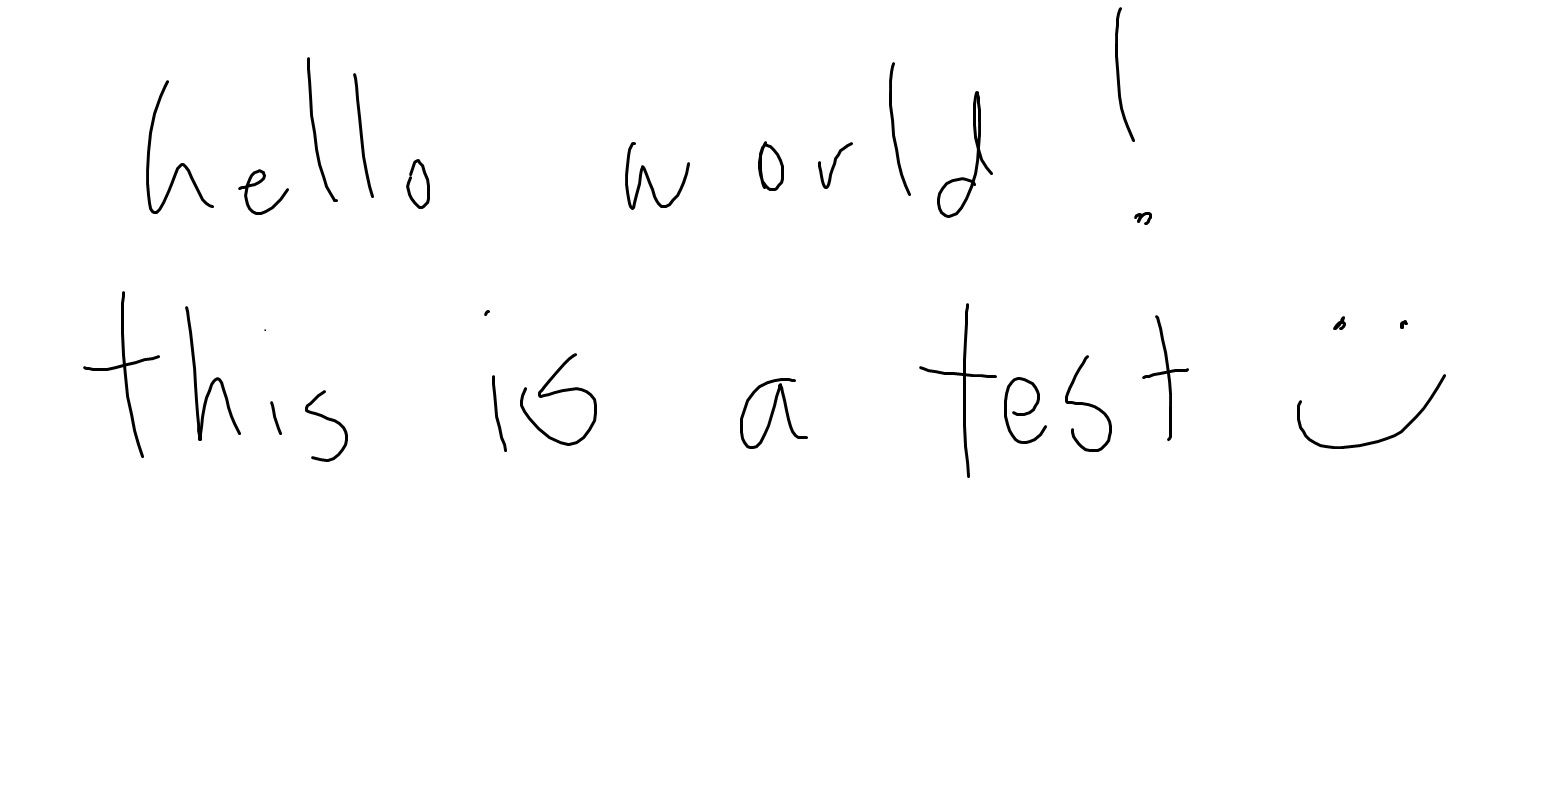 hello world!
this is a test :)